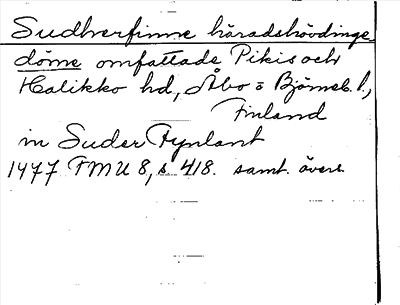 Sudherfinne häradshövdinge
döme omfattade Pikis och
Halikko hd, Åbo o Björneb. l.,
Finland
in Suder Fynlant
1477 FMU 8, s. 418. samt. övers.